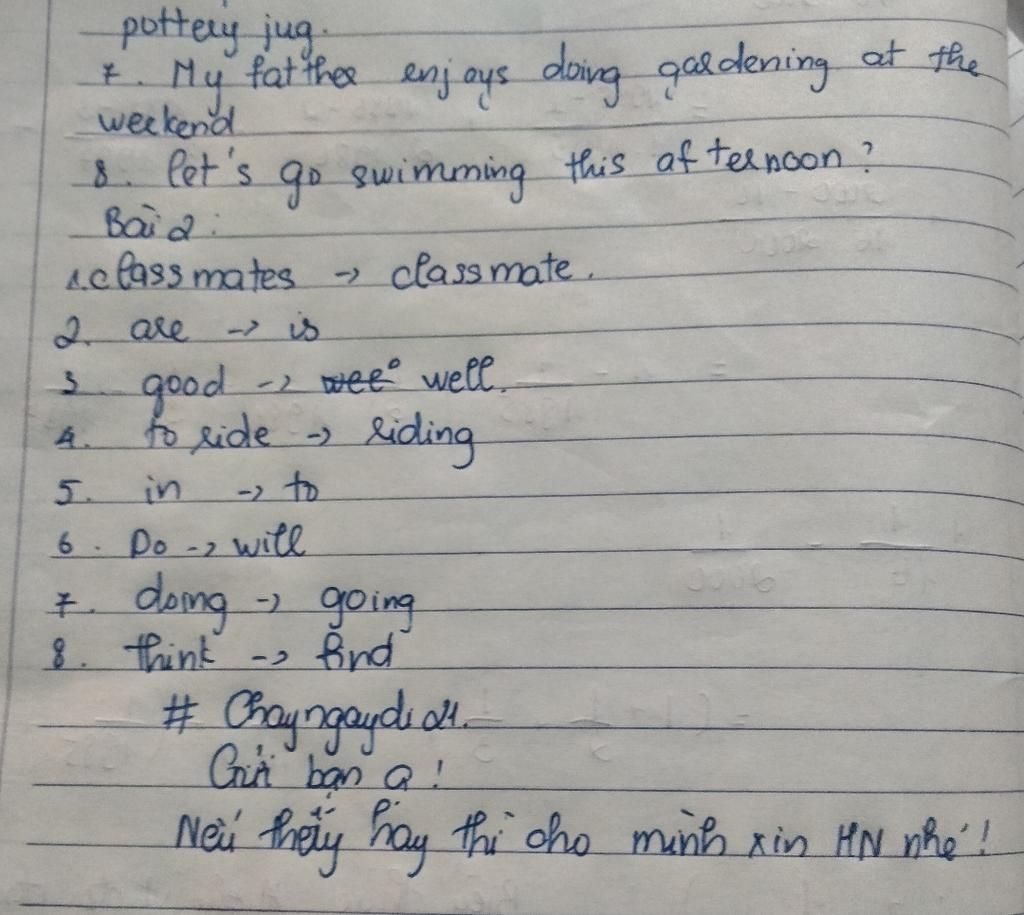 pottery jug.
7. My fatther enjoys doing gardening at the
weekend
8. let's go swimming this afternoon?
Bài 2:
1. classmates -> classmate.
2. are -> is
3 good -> well.
4. to ride -> riding
5. in -> to
6. Do -> will
7. doing -> going
8. think -> find
# Chayngaydi 21.
Gửi bạn ạ!
Nếu thấy hay thì cho mình xin HN nhé!